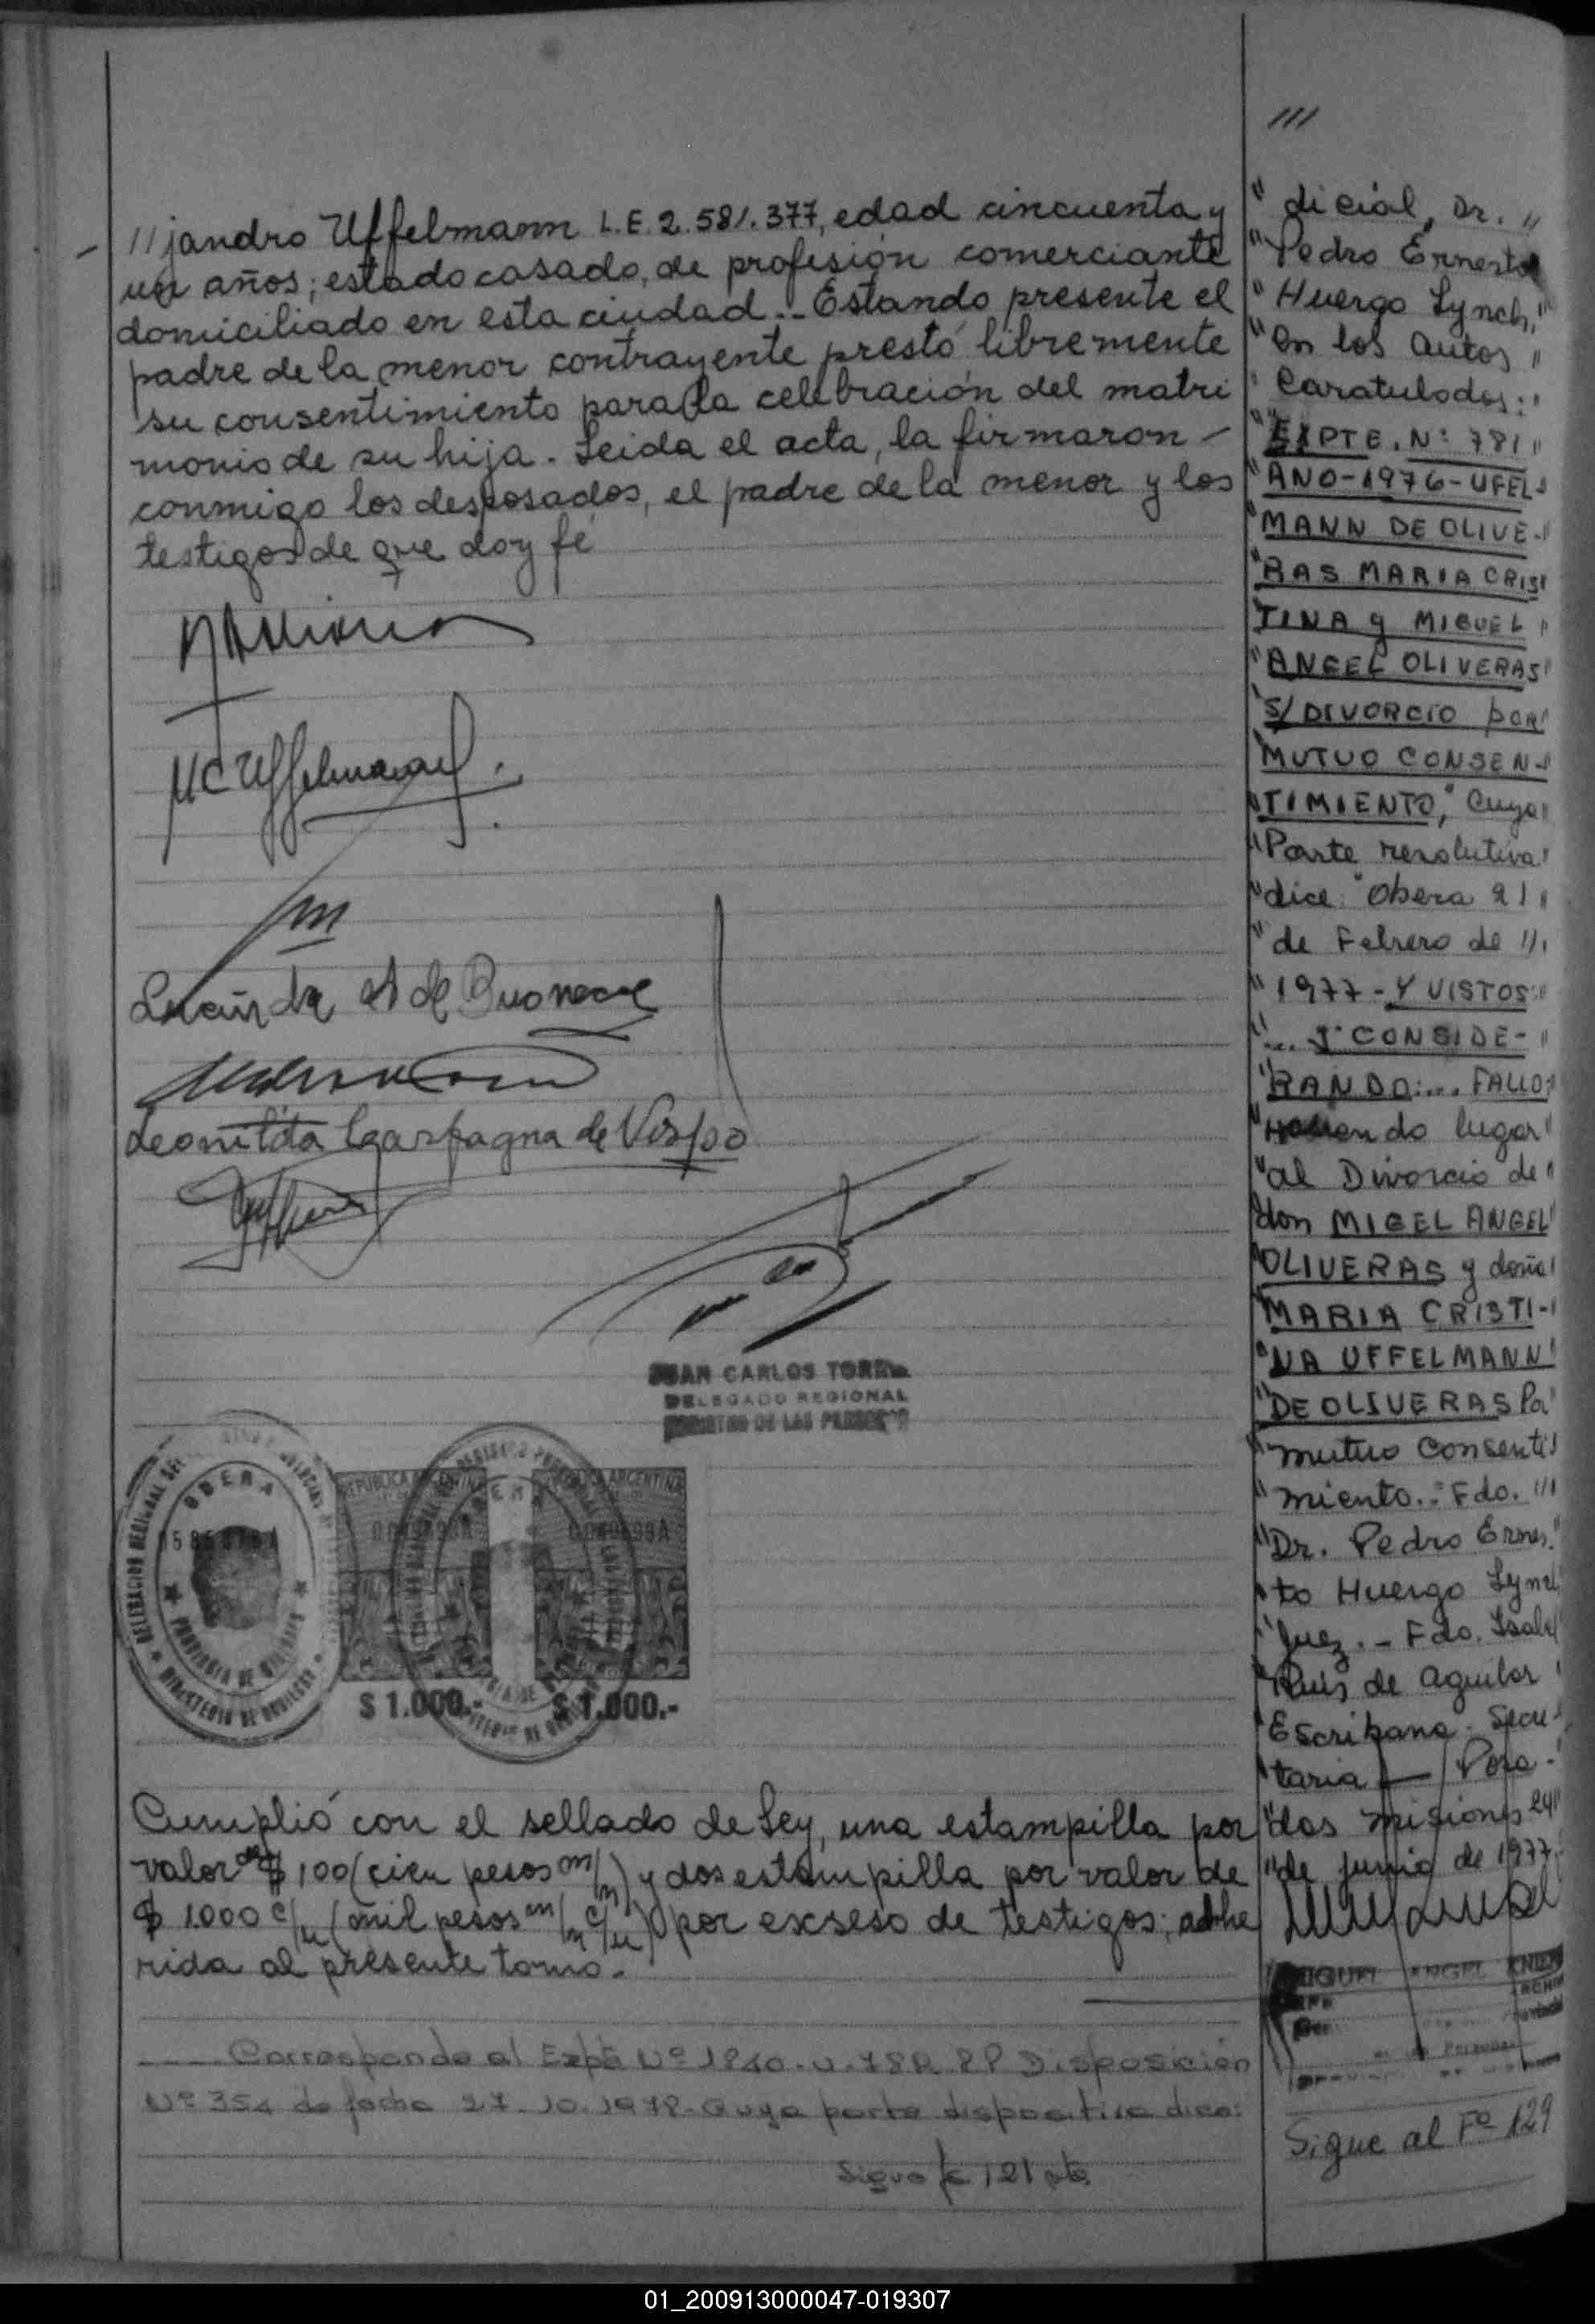 //jandro Uffelmann L.E. 2.581.377, edad cincuenta y
un años; estado casado, de profesión comerciante
domiciliado en esta ciudad.- Estando presente el
padre de la menor contrayente prestó libremente
su consentimiento para la celebración del matri
monio de su hija. Leida el acta, la firmaron -
conmigo los desposados, el padre de la menor y los
testigos de que doy fé
MC Uffelmann
Leonilda Carfagna de Vispo
JUAN CARLOS TORRES
DELEGADO REGIONAL
REGISTRO DE LAS PERSONAS
OBERA
REPUBLICA ARGENTINA
$ 1.000.- $ 1.000.-
Cumplió con el sellado de Ley, una estampilla por
valor de $ 100 (cien pesos m/n) y dos estampilla por valor de
$ 1000 c/u (mil pesos m/n c/u) por exseso de testigos; adhe
rida al presente tomo.-
Corresponde al Expte Nº Disposición
Nº 354 de fecha 27.10.1978. Cuya parte dispositiva dice:
Sigue 121
///
" dicial, Dr. "
" Pedro Ernesto
" Huergo Lynch, "
" en los autos "
" Caratulados: "
" EXPTE. Nº 781 "
" AÑO-1976-UFEL "
" MANN DE OLIVE- "
" RAS MARIA CRIS "
TINA y MIGUEL "
" ANGEL OLIVERAS "
" S/ DIVORCIO POR "
" MUTUO CONSEN- "
" TIMIENTO," Cuya "
" Parte resolutiva "
" dice: "Obera 21 "
" de Febrero de "
" 1977 - Y VISTOS: "
" ... Y CONSIDE- "
" RANDO:... FALLO: "
" Haciendo lugar "
" al Divorcio de "
don MIGEL ANGEL "
" OLIVERAS y doña "
" MARIA CRISTI- "
" NA UFFELMANN "
" DE OLIVERAS Por "
" mutuo Consenti "
" miento.- Fdo. "
" Dr. Pedro Ernes "
" to Huergo Lynch
" Juez.- Fdo. Isabel
" Ruis de Aguilar "
" Escribana. Secre "
" taria - Posa- "
" das Misiones 24 "
" de junio de 1977.
MIGUEL ANGEL
Sigue al Fº 129
01_200913000047-019307